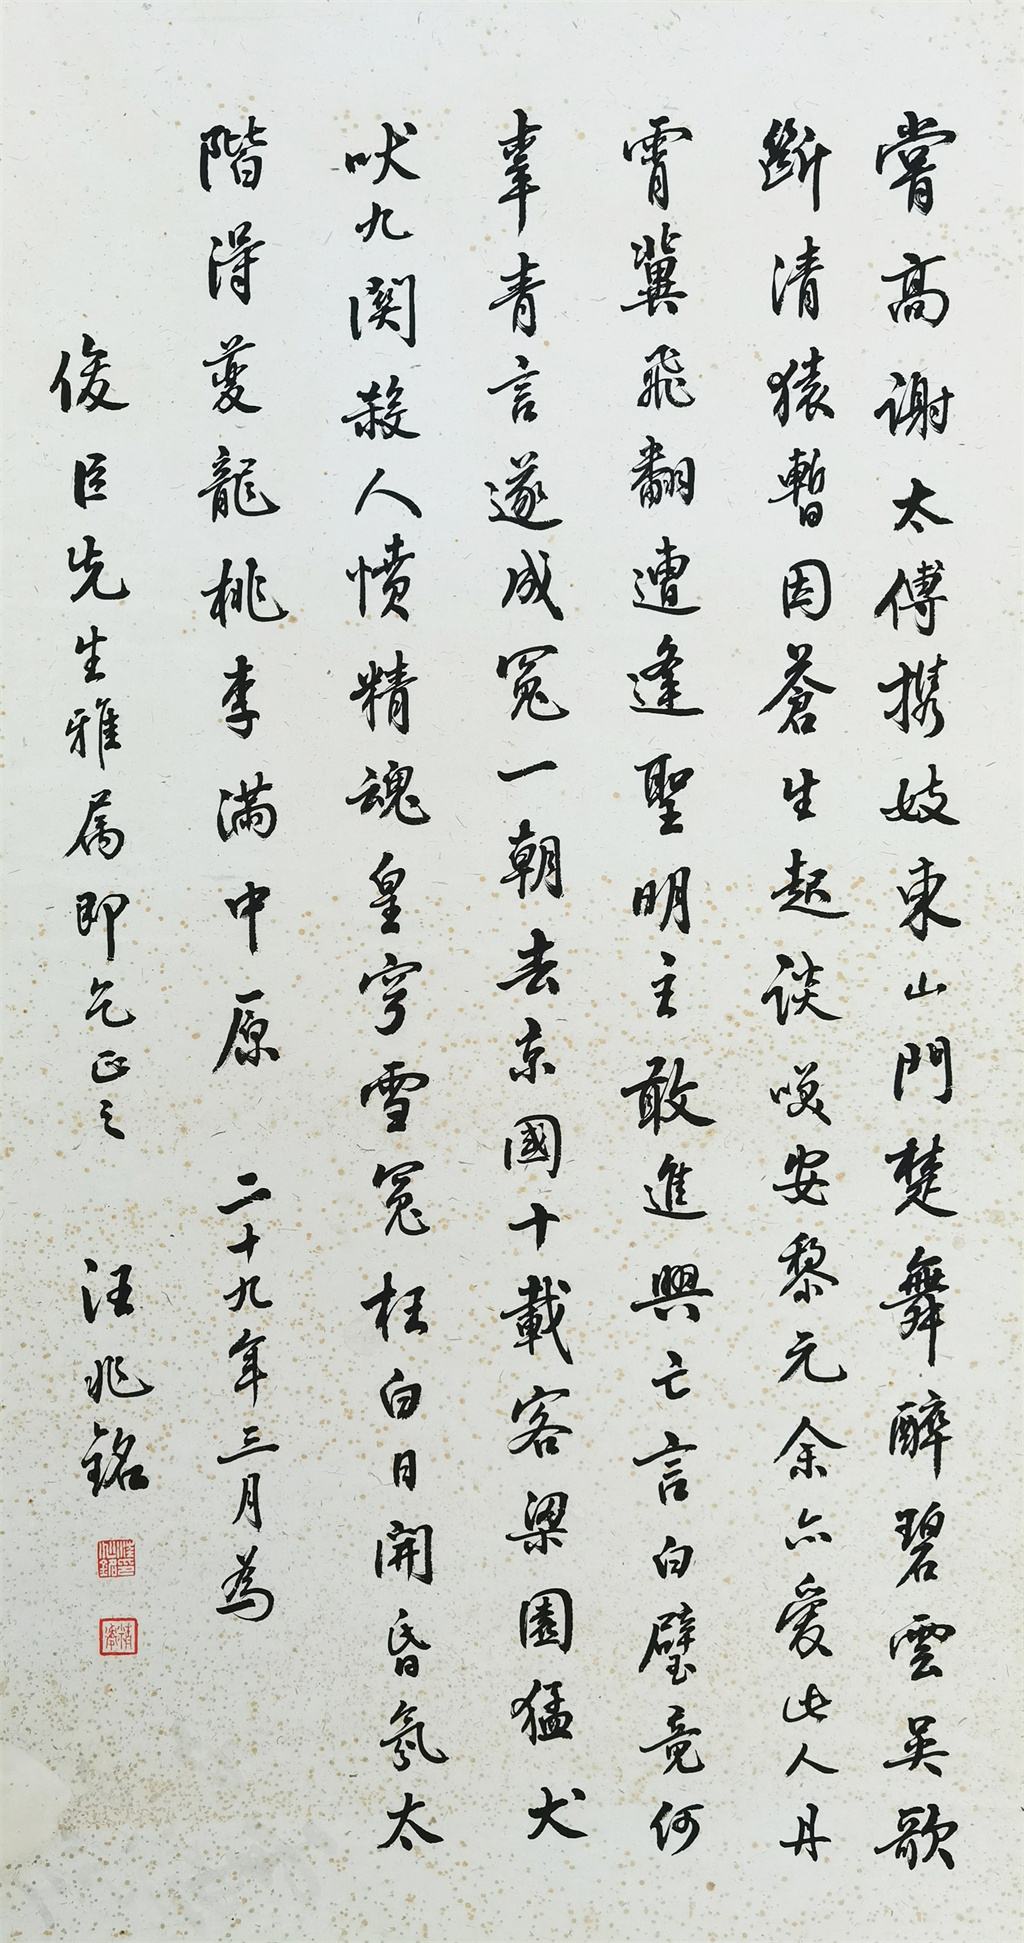 嘗高謝太傅携妓東山門楚舞醉碧雲吳歌
斷清猿暫因蒼生起談笑安黎元余亦愛此人丹
霄冀飛翻遭逢聖明主敢進興亡言白璧竟何
辜青言遂成冤一朝去京國十載客梁園猛犬
吠九關殺人憤精魂皇穹雪冤枉白日開昏氛太
階得夔龍桃李滿中原 二十九年三月為
俊臣先生雅屬即乞正之 汪兆銘
汪兆銘印